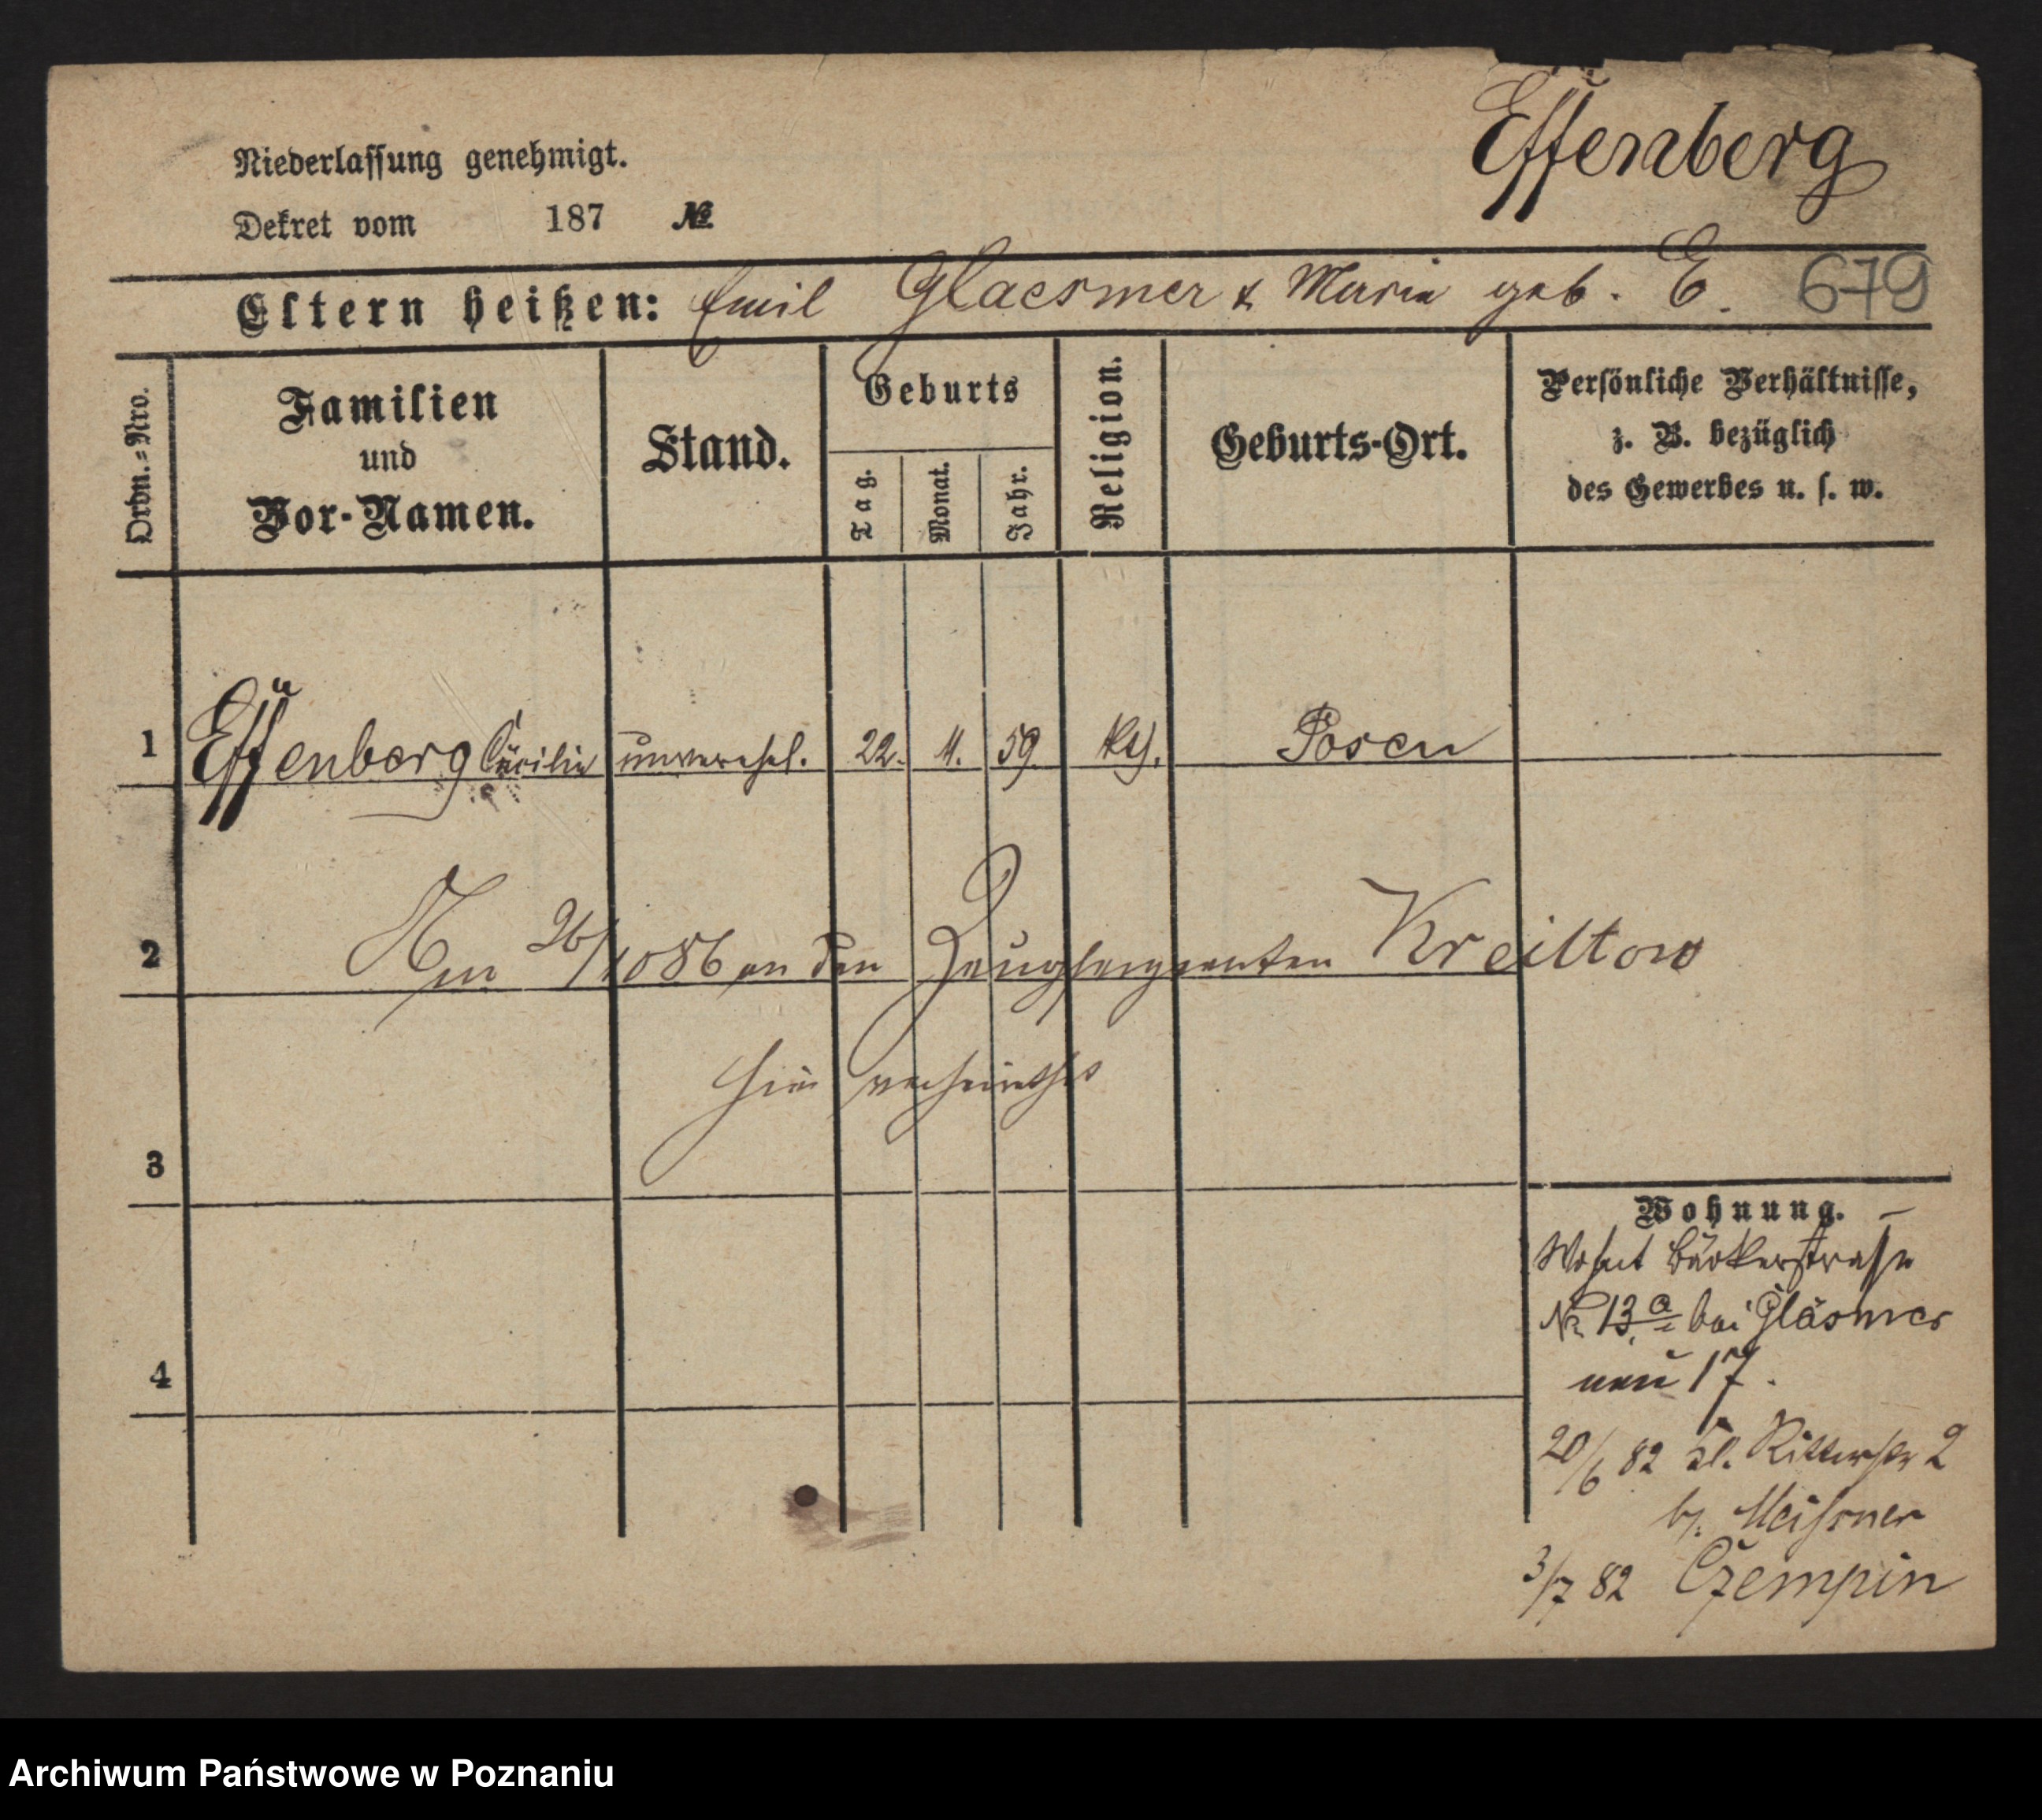 Effenberg
Niederlassung genehmigt.
Dekret vom 187 №
Eltern heißen: Emil Glaesmer & Maria geb. E. 679
Ordn.=Nro.
Familien
und
Vor-Namen.
Stand.
Geburts
Tag.
Monat.
Jahr.
Religion.
Geburts-Ort.
Persönliche Verhältnisse,
z. B. bezüglich
des Gewerbes u. s. w.
1 Effenberg Cäcilie unverehel. 22. 11. 59 kth. Posen
2 Am 26/10 86 an den Zeugsergeanten Kreittow
hier verheirathet
3
Wohnung.
Wohnt Bäckerstraße
№ 13a bei Gläsmer
neu 17.
4
20/6 82 kl. Ritterstr 2
b. Meissner
3/7 82 Czempin
Archiwum Państwowe w Poznaniu